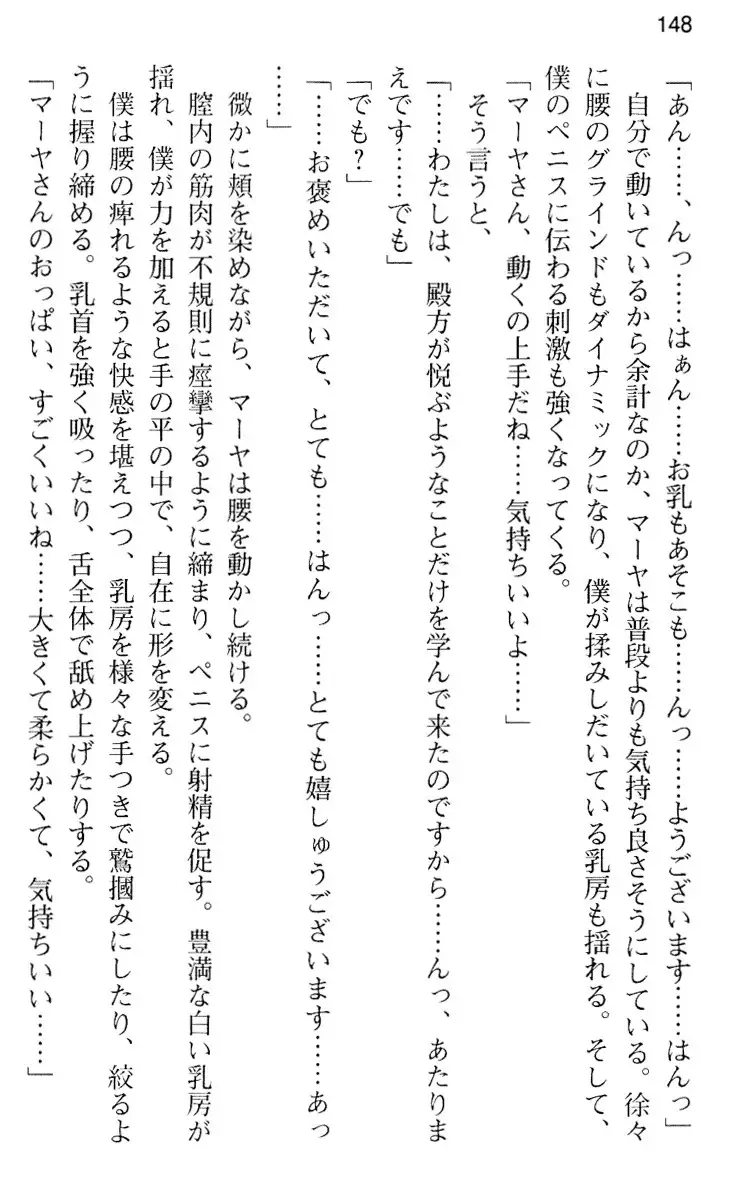 148
「あん……、んっ……はぁん……お乳もあそこも……んっ……ようございます……はんっ」
自分で動いているから余計なのか、マーヤは普段よりも気持ち良さそうにしている。徐々
に腰のグラインドもダイナミックになり、僕が揉みしだいている乳房も揺れる。そして、
僕のペニスに伝わる刺激も強くなってくる。
「マーヤさん、動くの上手だね……気持ちいいよ……」
そう言うと、
「……わたしは、殿方が悦ぶようなことだけを学んで来たのですから……んっ、あたりま
えです……でも」
「でも?」
「……お褒めいただいて、とても……はんっ……とても嬉しゅうございます……あっ
……」
微かに頬を染めながら、マーヤは腰を動かし続ける。
膣内の筋肉が不規則に痙攣するように締まり、ペニスに射精を促す。豊満な白い乳房が
揺れ、僕が力を加えると手の平の中で、自在に形を変える。
僕は腰の痺れるような快感を堪えつつ、乳房を様々な手つきで鷲摑みにしたり、絞るよ
うに握り締める。乳首を強く吸ったり、舌全体で舐め上げたりする。
「マーヤさんのおっぱい、すごくいいね……大きくて柔らかくて、気持ちいい……」